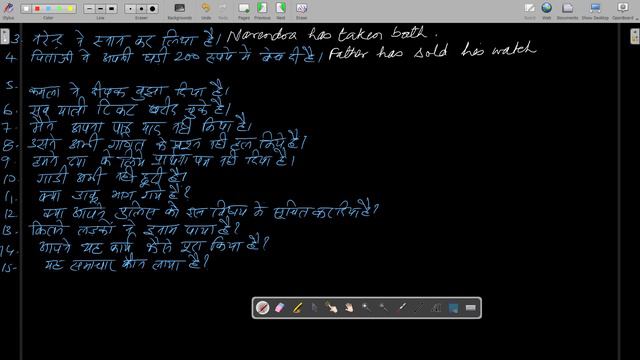 Stylus Color Line Eraser Background Boards Pages Web Show Desktop OpenBoard
3. नरेन्द्र ने स्नान कर लिया है। Narendra has taken bath.
4. पिताजी ने अपनी घडी 200 रुपये में बेच दी है। Father has sold his watch
5. कमला ने दीपक बुझा दिया है।
6. सब यात्री टिकट खरीद चुके है।
7. मैंने अपना पाठ याद नही किया है।
8. उसने अभी गणित के प्रश्न नही हल किये है।
9. हमने दया के लिये प्रार्थना पत्र नही दिया है।
10. गाडी अभी नही छूटी है।
11. क्या डाकू भाग गये है?
12. क्या आपने पुलिस को इस विषय में सूचित कर दिया है?
13. कितने लडकों ने इनाम पाया है?
14. आपने यह कार्य कैसे पूरा किया है?
15. यह समाचार कौन लाया है?